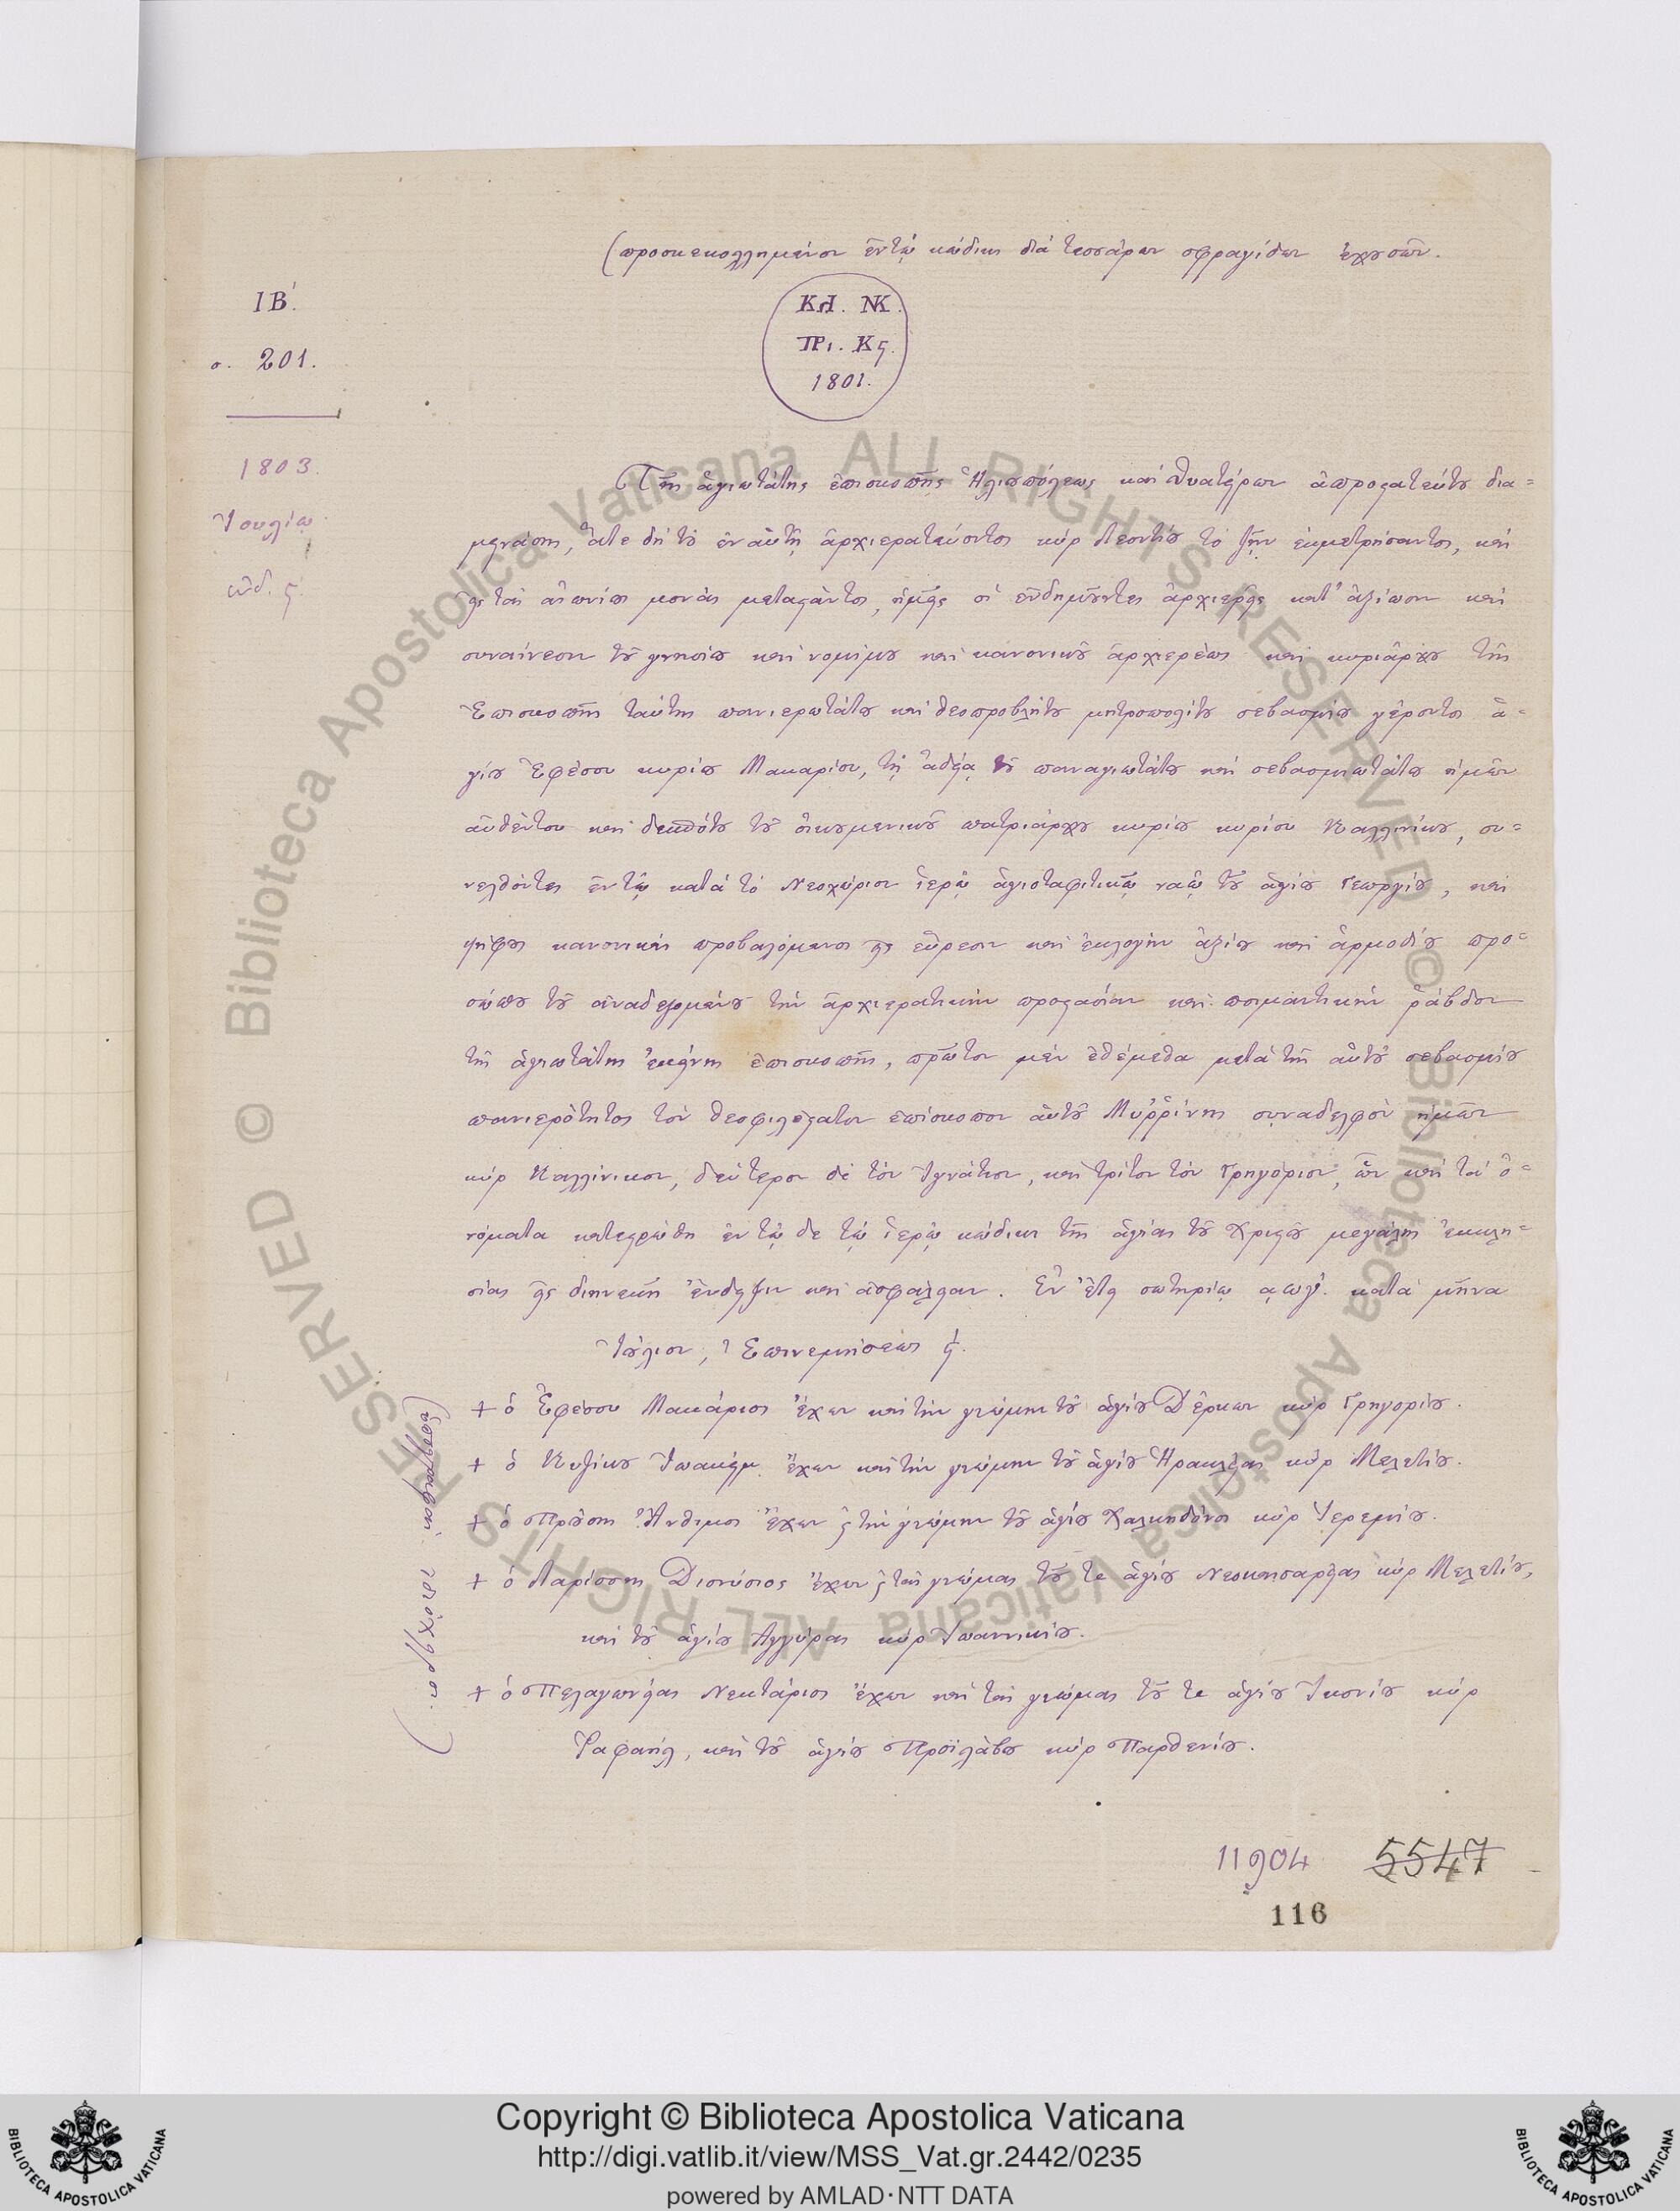 (προσκεκολλημένον ἐν τῷ κώδικι διὰ τεσσάρων σφραγίδων ἐχουσῶν.
ΙΒ΄.
σ. 201.
ΚΛ. ΝΚ.
ΠΡι. Κς.
1801.
1803.
Ἰουλίῳ
ἰνδ. ς.
Τῆς ἁγιωτάτης ἐπισκοπῆς Ἡλιουπόλεως καὶ Θυατείρων ἀπροστατεύτου δια=
μεινάσης, ἅτε δὴ τοῦ ἐν αὐτῇ ἀρχιερατεύοντος κὺρ Λεοντίου τὸ ζῆν ἐκμετρήσαντος, καὶ
εἰς τὰς αἰωνίους μονὰς μεταστάντος, ἡμεῖς οἱ ἐνδημοῦντες ἀρχιερεῖς κατ' ἀξίωσιν καὶ
συναίνεσιν τοῦ γνησίου καὶ νομίμου καὶ κανονικοῦ ἀρχιερέως καὶ κυριάρχου τῆς
Ἐπισκοπῆς ταύτης πανιερωτάτου καὶ θεοπροβλήτου μητροπολίτου σεβασμίου γέροντος ἁ=
γίου Ἐφέσου κυρίου Μακαρίου, τῇ ἀδείᾳ τοῦ παναγιωτάτου καὶ σεβασμιωτάτου ἡμῶν
αὐθέντου καὶ δεσπότου τοῦ οἰκουμενικοῦ πατριάρχου κυρίου κυρίου Καλλινίκου, συ=
νελθόντες ἐν τῷ κατὰ τὸ Νεοχώριον ἱερῷ ἁγιοταφιτικῷ ναῷ τοῦ ἁγίου Γεωργίου, καὶ
ψήφους κανονικὰς προβαλόμενοι εἰς εὕρεσιν καὶ ἐκλογὴν ἀξίου καὶ ἁρμοδίου προ=
σώπου τοῦ ἀναδεξομένου τὴν ἀρχιερατικὴν προστασίαν καὶ ποιμαντικὴν ῥάβδον
τῆς ἁγιωτάτης ἐκείνης ἐπισκοπῆς, πρῶτον μὲν ἐθέμεθα μετὰ τῆς αὐτοῦ σεβασμίου
πανιερότητος τὸν θεοφιλέστατον ἐπίσκοπον αὐτοῦ Μυῤῥίνης συναδελφὸν ἡμῶν
κὺρ Καλλίνικον, δεύτερον δὲ τὸν Ἰγνάτιον, καὶ τρίτον τὸν Γρηγόριον, ὧν καὶ τὰ ὀ=
νόματα κατεστρώθη ἐν τῷδε τῷ ἱερῷ κώδικι τῆς ἁγίας τοῦ Χριστοῦ μεγάλης ἐκκλη=
σίας εἰς διηνεκῆ ἔνδειξιν καὶ ἀσφάλειαν. Ἐν ἔτει σωτηρίῳ αωγ΄. κατὰ μῆνα
Ἰούλιον, Ἐπινεμήσεως ς΄.
+ ὁ Ἐφέσου Μακάριος ἔχων καὶ τὴν γνώμην τοῦ ἁγίου Δέρκων κὺρ Γρηγορίου.
+ ὁ Κυζίκου Ἰωακεὶμ ἔχων καὶ τὴν γνώμην τοῦ ἁγίου Ἡρακλείας κὺρ Μελετίου.
+ ὁ Προύσης Ἄνθιμος ἔχων ϗ τὴν γνώμην τοῦ ἁγίου Χαλκηδόνος κὺρ Ἱερεμίου.
+ ὁ Λαρίσσης Διονύσιος ἔχων ϗ τὰς γνώμας τοῦ τε ἁγίου Νεοκαισαρείας κὺρ Μελετίου,
καὶ τοῦ ἁγίου Ἀγγύρας κὺρ Ἰωαννικίου.
+ ὁ Πελαγωνείας Νεκτάριος ἔχων καὶ τὰς γνώμας τοῦ τε ἁγίου Ἰκονίου κὺρ
Ῥαφαήλ, καὶ τοῦ ἁγίου Προϊλάβου κὺρ Παρθενίου.
11904 5547
116
Copyright © Biblioteca Apostolica Vaticana
http://digi.vatlib.it/view/MSS_Vat.gr.2442/0235
powered by AMLAD·NTT DATA